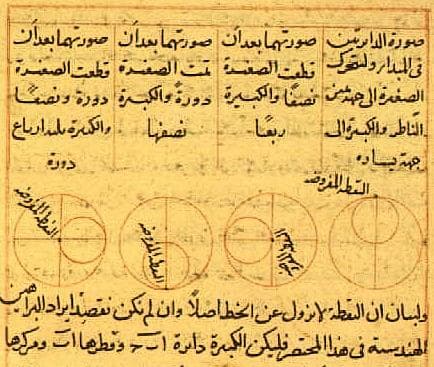 صورة الدايرتين
فى المبدا ولتتحرك
الصغيرة الى جهة يمين
الناظر والكبيرة الى
جهة يساره
صورتهما بعد ان
قطعت الصغيرة
نصفًا والكبيرة
ربعًا
صورتهما بعد ان
تمت الصغيرة
دورةً والكبيرة
نصفها
صورتهما بعد ان
قطعت الصغيرة
دورة ونصفًا
والكبيرة ثلثة ارباع
دورة
النقطة المفروضة
النقطة المفروضة
النقطة المفروضة
النقطة المفروضة
ولبيان ان النقطة لا تزول عن الخط اصلاً وان لم نكن نقصد ايراد البراهين
الهندسية فى هذا المختصر فليكن الكبيرة دائرة ا ب ج وقطرها ا ب ومركزها